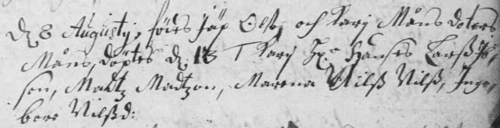 d. 8 Augustj, föddes Jöp Olß, och Karj Måns doters
Måns, döptes d. 18 T Karj Hanses Larß
son, Matz Matzon, Marena Nilß Nilß, Inge
bore Nilßd: